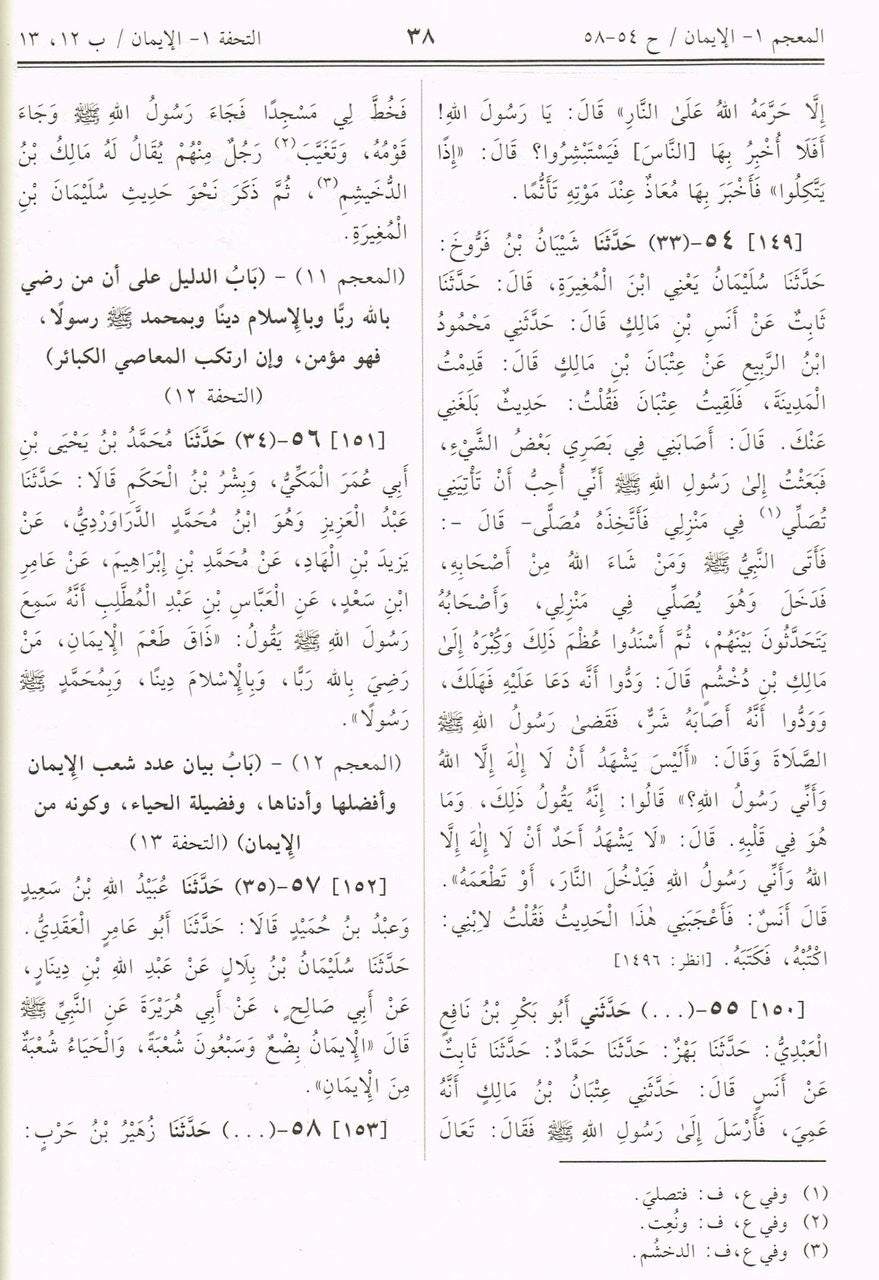 المعجم ١- الإيمان / ح ٥٤-٥٨
٣٨
التحفة ١- الإيمان / ب ١٢، ١٣
إِلَّا حَرَّمَهُ اللهُ عَلَىٰ النَّارِ» قَالَ: يَا رَسُولَ اللهِ!
أَفَلَا أُخْبِرُ بِهَا [النَّاسَ] فَيَسْتَبْشِرُوا؟ قَالَ: «إِذًا
يَتَّكِلُوا» فَأَخْبَرَ بِهَا مُعَاذٌ عِنْدَ مَوْتِهِ تَأَثُّمًا.
[١٤٩] ٥٤-(٣٣) حَدَّثَنَا شَيْبَانُ بْنُ فَرُّوخَ:
حَدَّثَنَا سُلَيْمَانُ يَعْنِي ابْنَ الْمُغِيرَةِ، قَالَ: حَدَّثَنَا
ثَابِتٌ عَنْ أَنَسِ بْنِ مَالِكٍ قَالَ: حَدَّثَنِي مَحْمُودُ
ابْنُ الرَّبِيعِ عَنْ عِتْبَانَ بْنِ مَالِكٍ قَالَ: قَدِمْتُ
الْمَدِينَةَ، فَلَقِيتُ عِتْبَانَ فَقُلْتُ: حَدِيثٌ بَلَغَنِي
عَنْكَ. قَالَ: أَصَابَنِي فِي بَصَرِي بَعْضُ الشَّيْءِ،
فَبَعَثْتُ إِلىٰ رَسُولِ اللهِ ﷺ أَنِّي أُحِبُّ أَنْ تَأْتِيَنِي
تُصَلِّي(١) فِي مَنْزِلِي فَأَتَّخِذَهُ مُصَلًّى- قَالَ -:
فَأَتَى النَّبِيُّ ﷺ وَمَنْ شَاءَ اللهُ مِنْ أَصْحَابِهِ،
فَدَخَلَ وَهُوَ يُصَلِّي فِي مَنْزِلِي، وَأَصْحَابُهُ
يَتَحَدَّثُونَ بَيْنَهُمْ، ثُمَّ أَسْنَدُوا عُظْمَ ذَلِكَ وَكِبْرَهُ إِلَىٰ
مَالِكِ بْنِ دُخْشُمٍ قَالَ: وَدُّوا أَنَّه دَعَا عَلَيْهِ فَهَلَكَ،
وَوَدُّوا أَنَّهُ أَصَابَهُ شَرٌّ، فَقَضىٰ رَسُولُ اللهِ ﷺ
الصَّلَاةَ وَقَالَ: «أَلَيْسَ يَشْهَدُ أَنْ لَا إِلٰهَ إِلَّا اللهُ
وَأَنِّي رَسُولُ اللهِ؟» قَالُوا: إِنَّهُ يَقُولُ ذَلِكَ، وَمَا
هُوَ فِي قَلْبِهِ. قَالَ: «لَا يَشْهَدُ أَحَدٌ أَنْ لَا إِلٰهَ إِلَّا
اللهُ وَأَنِّي رَسُولُ اللهِ فَيَدْخُلَ النَّارَ، أَوْ تَطْعَمَهُ».
قَالَ أَنَسٌ: فَأَعْجَبَنِي هٰذَا الْحَدِيثُ فَقُلْتُ لِابْنِي:
اكْتُبْهُ، فَكَتَبَهُ. [انظر: ١٤٩٦]
[١٥٠] ٥٥-(...) حَدَّثَنِي أَبُو بَكْرِ بْنُ نَافِعٍ
الْعَبْدِيُّ: حَدَّثَنَا بَهْزٌ: حَدَّثَنَا حَمَّادٌ: حَدَّثَنَا ثَابِتٌ
عَنْ أَنَسٍ قَالَ: حَدَّثَنِي عِتْبَانُ بْنُ مَالِكٍ أَنَّهُ
عَمِيَ، فَأَرْسَلَ إِلَىٰ رَسُولِ اللهِ ﷺ فَقَالَ: تَعَالَ
فَخُطَّ لِي مَسْجِدًا فَجَاءَ رَسُولُ اللهِ ﷺ وَجَاءَ
قَوْمُهُ، وَتَغَيَّبَ(٢) رَجُلٌ مِنْهُمْ يُقَالُ لَهُ مَالِكُ بْنُ
الدُّخَيشِمِ(٣)، ثُمَّ ذَكَرَ نَحْوَ حَدِيثِ سُلَيْمَانَ بْنِ
الْمُغِيرَةِ.
(المعجم ١١) - (بَابُ الدليل على أن من رضي
بالله ربًّا وبالإسلام دينًا وبمحمد ﷺ رسولًا،
فهو مؤمن، وإن ارتكب المعاصي الكبائر)
(التحفة ١٢)
[١٥١] ٥٦-(٣٤) حَدَّثَنَا مُحَمَّدُ بْنُ يَحْيَى بْنِ
أَبِي عُمَرَ الْمَكِّيُّ، وَبِشْرُ بْنُ الْحَكَمِ قَالَا: حَدَّثَنَا
عَبْدُ الْعَزِيزِ وَهُوَ ابْنُ مُحَمَّدٍ الدَّرَاوَرْدِيُّ، عَنْ
يَزِيدَ بْنِ الْهَادِ، عَنْ مُحَمَّدِ بْنِ إِبْرَاهِيمَ، عَنْ عَامِرِ
ابْنِ سَعْدٍ، عَنِ الْعَبَّاسِ بْنِ عَبْدِ الْمُطَّلِبِ أَنَّهُ سَمِعَ
رَسُولَ اللهِ ﷺ يَقُولُ: «ذَاقَ طَعْمَ الْإِيمَانِ، مَنْ
رَضِيَ بِالله رَبًّا، وَبِالْإِسْلَامِ دِينًا، وَبِمُحَمَّدٍ ﷺ
رَسُولًا».
(المعجم ١٢) - (بَابُ بيان عدد شعب الإيمان
وأفضلها وأدناها، وفضيلة الحياء، وكونه من
الإيمان) (التحفة ١٣)
[١٥٢] ٥٧-(٣٥) حَدَّثَنَا عُبَيْدُ اللهِ بْنُ سَعِيدٍ
وَعبْدُ بنُ حُمَيْدٍ قَالَا: حَدَّثَنَا أَبُو عَامِرٍ الْعَقَدِيُّ.
حَدَّثَنَا سُلَيْمَانُ بْنُ بِلَالٍ عَنْ عَبْدِ اللهِ بْنِ دِينَارٍ،
عَنْ أَبِي صَالِحٍ، عَنْ أَبِي هُرَيْرَةَ عَنِ النَّبِيِّ ﷺ
قَالَ «الْإِيمَانُ بِضْعٌ وَسَبْعُونَ شُعْبَةً، وَالْحَيَاءُ شُعْبَةٌ
مِنَ الْإِيمَانِ».
[١٥٣] ٥٨-(...) حَدَّثَنَا زُهَيْرُ بْنُ حَرْبٍ:
(١) وفي ع، ف: فتصليَ.
(٢) وفي ع، ف: ونُعِت.
(٣) وفي ع،ف: الدخشُم.